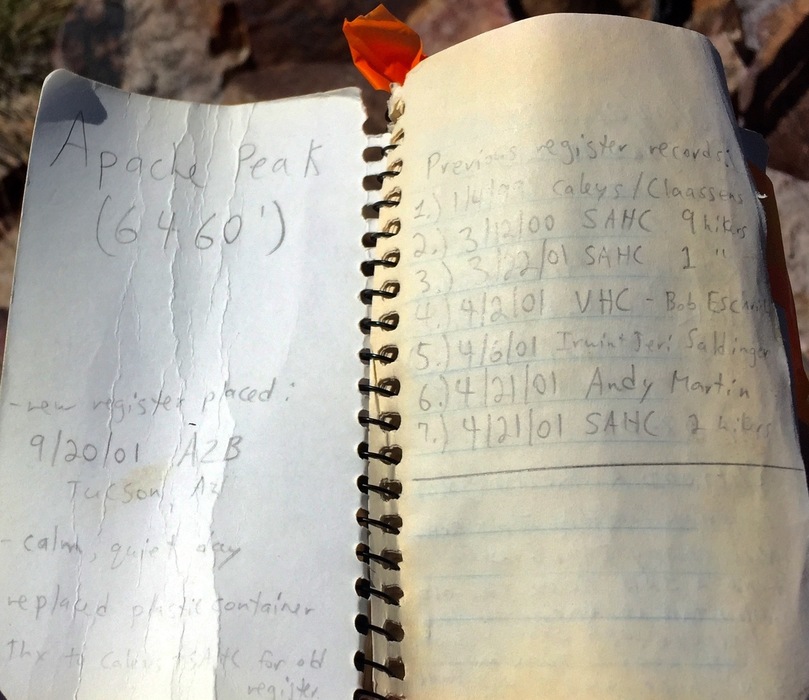 Apache Peak
(6460')
-new register placed:
9/20/01 AZB
Tucson, Az
- calm, quiet day
replaced plastic container
Thx to Caleys + SAHC for old
register
Previous register records:
1.) Caleys/Claassens
2.) 3/12/00 SAHC 9 hikers
3.) 3/22/01 SAHC 1 "
4.) 4/2/01 VHC - Bob
5.) 4/6/01 Irwin + Jeri Saldinger
6.) 4/21/01 Andy Martin
7.) 4/21/01 SAHC 2 hikers